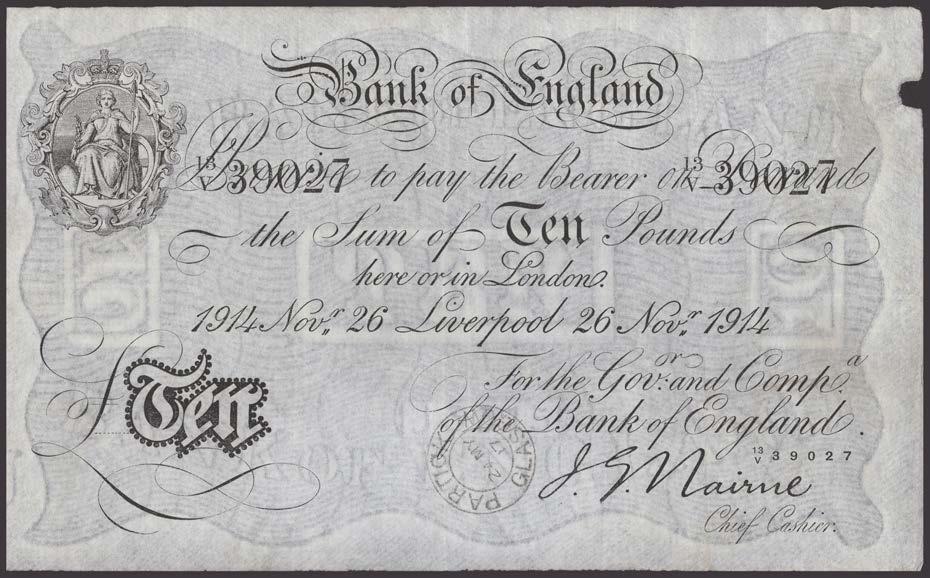 Bank of England
I Promise to pay the Bearer on Demand
13/V 39027 13/V 39027
the Sum of Ten Pounds
here or in London.
1914 Novr. 26 Liverpool 26 Novr. 1914
For the Govr. and Compa.
of the Bank of England.
£Ten
13/V 39027
J. G. Nairne
Chief Cashier.
PARTICK GLASGOW
24 MY 17